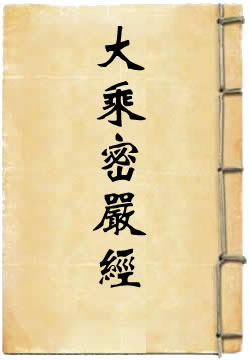 大乘密嚴經